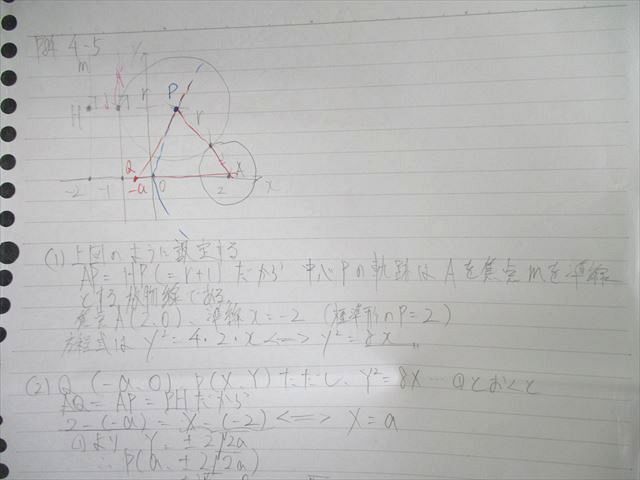 問 4-5
m
Y
H
P
r
r
A
Q
-2
-1
-a
0
2
x
(1) 上図のように設定する
AP = HP (= r+1) だから 中心Pの軌跡は Aを焦点 mを準線
とする放物線である。
焦点A(2,0)、準線 x = -2 (標準形のP=2)
方程式は y² = 4・2・x <=> y² = 8x 〃
(2) Q (-a, 0), P(X, Y) ただし、Y² = 8X … ①とおくと
AQ = AP = PH だから
2-(-a) = X-(-2) <=> X = a
①より Y = ±2√2a
∴ P(a, ±2√2a)